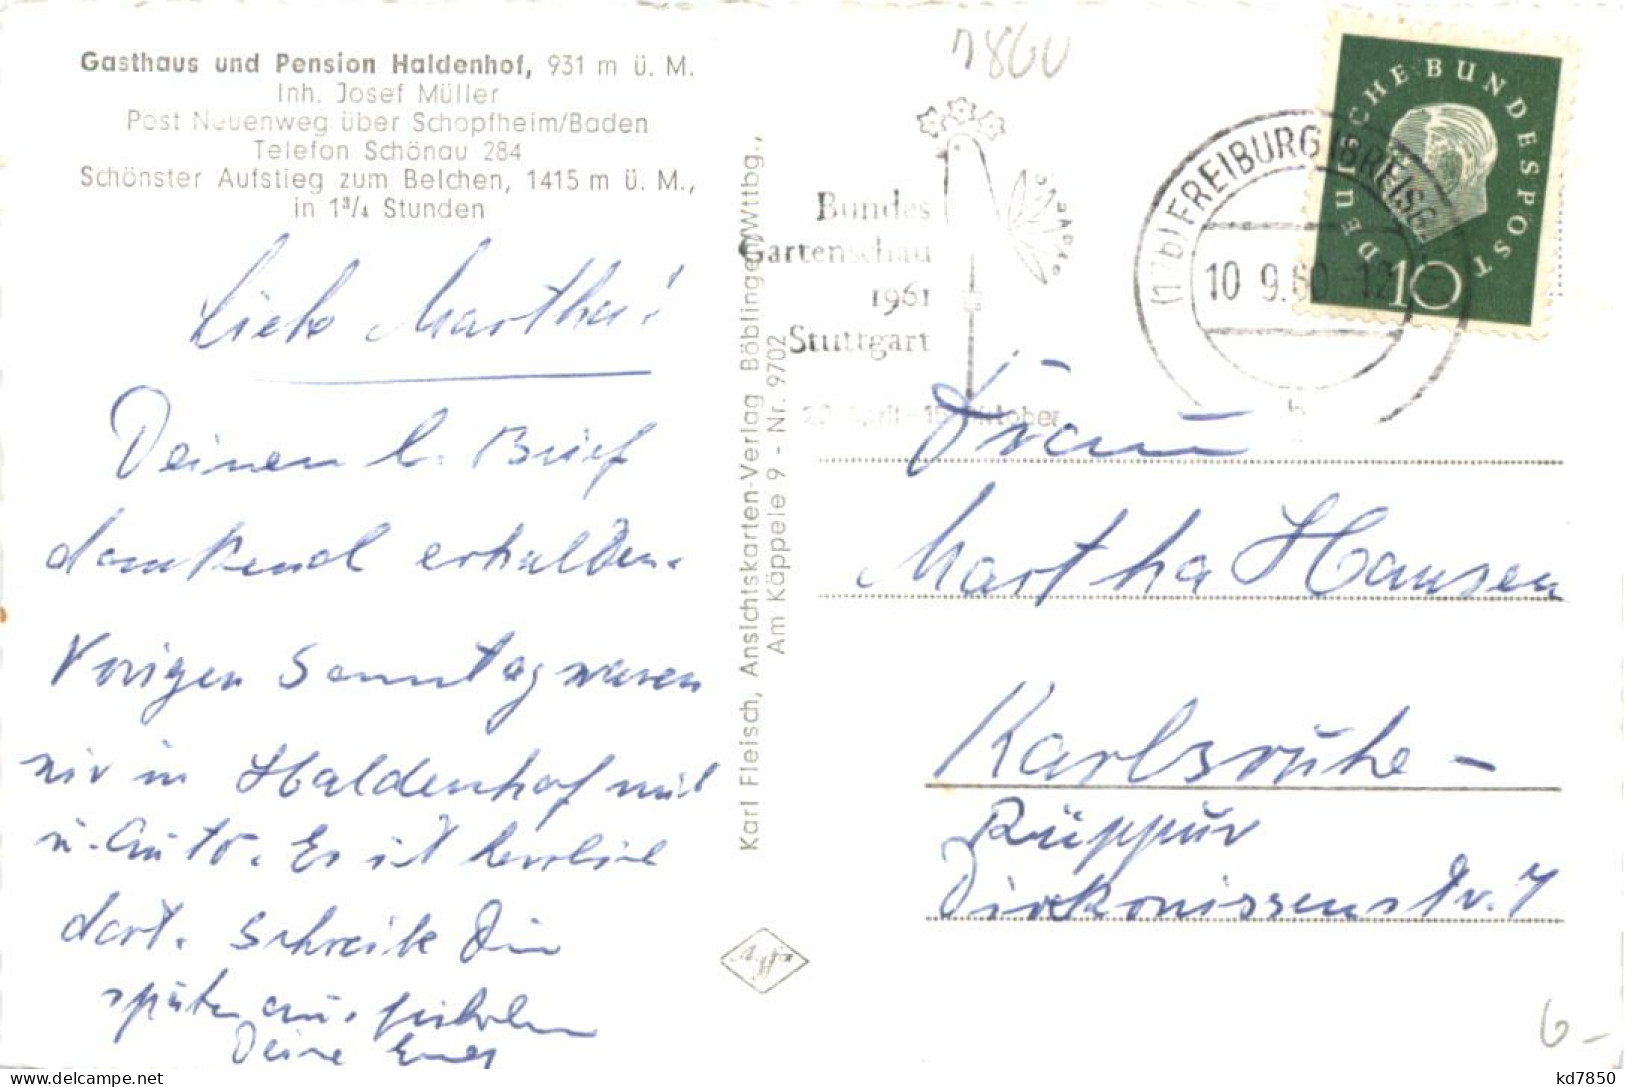 Gasthaus und Pension Haldenhof, 931 m ü. M.
Inh. Josef Müller
Post Neuenweg über Schopfheim/Baden
Telefon Schönau 284
Schönster Aufstieg zum Belchen, 1415 m ü. M.,
in 1³/₄ Stunden
Liebe Martha!
Deinen l. Brief
dankend erhalten.
Vorigen Sonntag waren
wir in Haldenhof mit
u. Auto. Es ist herrlich
dort. Schreibe Dir
später
Deine
Karl Fleisch, Ansichtskarten-Verlag Böblingen/Wttbg.,
Am Käppele 9 - Nr. 9702
Agfa
7860
Bundes
Gartenschau
1961
Stuttgart
April - 15. Oktober
(17b) FREIBURG (BREISG
10.9.60-12
b
DEUTSCHE BUNDESPOST
10
Frau
Martha Hansen
Karlsruhe -
Rüppur
Diakonissenstr. 7
6-
kd7850